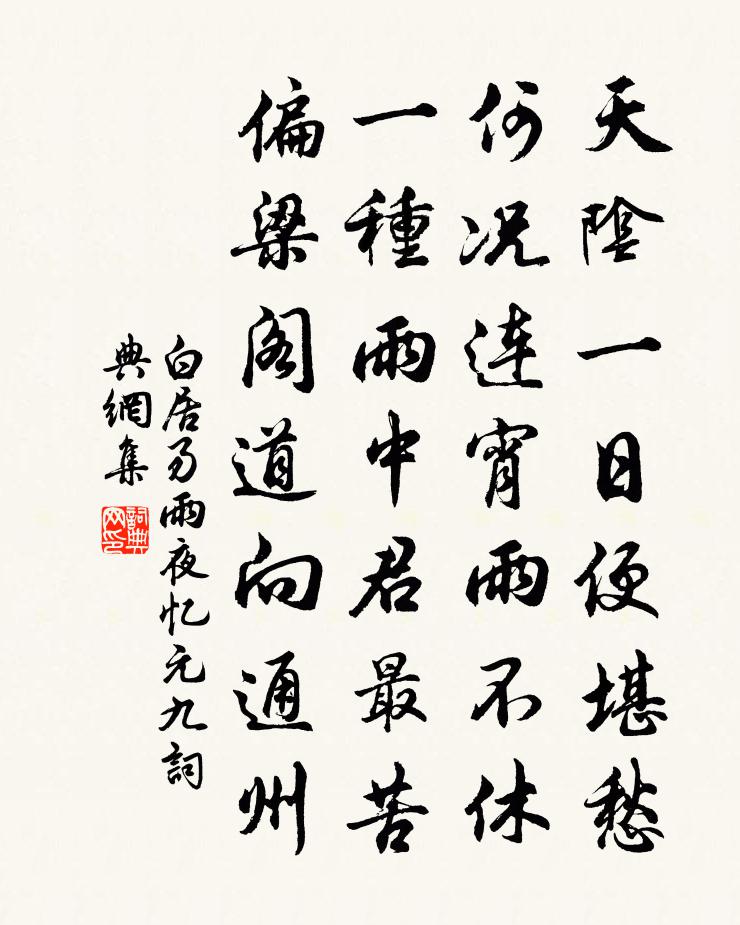 天陰一日便堪愁
何况連宵雨不休
一種雨中君最苦
偏梁閣道向通州
白居易雨夜忆元九詞
典網集
詞典
网印